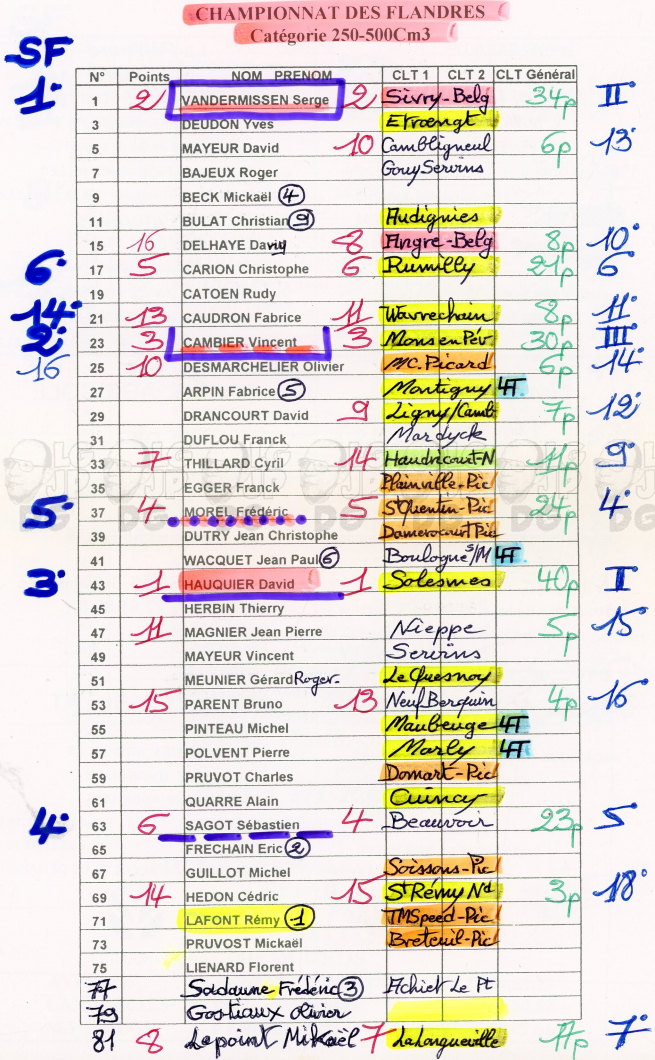 CHAMPIONNAT DES FLANDRES
Catégorie 250-500Cm3
SF
N° Points NOM PRENOM CLT 1 CLT 2 CLT Général
1° 1 2 VANDERMISSEN Serge 2 Sivry-Belg 34p II°
3 DEUDON Yves Etroengt
5 MAYEUR David 10 Cambligneul 6p 13°
7 BAJEUX Roger Gouy Servins
9 BECK Mickaël 4
11 BULAT Christian 9 Audignies
15 16 DELHAYE Dany 8 Angre-Belg 8p 10°
6° 17 5 CARION Christophe 6 Rumilly 21p 6°
19 CATOEN Rudy
14° 21 13 CAUDRON Fabrice 11 Wavrechain 8p 11°
2° 23 3 CAMBIER Vincent 3 Mons en Pév. 30p III
16 25 10 DESMARCHELIER Olivier MC. Picard 6p 14°
27 ARPIN Fabrice 5 Montigny 4T
29 DRANCOURT David 9 Ligny/Camb 7p 12°
31 DUFLOU Franck Mardyck
33 7 THILLARD Cyril 14 Haudricourt-N 11p 9°
35 EGGER Franck Plainville-Pic
5° 37 4 MOREL Frédéric 5 St Quentin-Pic 24p 4°
39 DUTRY Jean Christophe Damerocourt Pic
41 WACQUET Jean Paul 6 Boulogne s/M 4T
3° 43 1 HAUQUIER David 1 Solesmes 40p I
45 HERBIN Thierry
47 11 MAGNIER Jean Pierre Nieppe 5p 15°
49 MAYEUR Vincent Servins
51 MEUNIER Gérard Roger. Le Quesnoy
53 15 PARENT Bruno 13 Neuf Berquin 4p 16°
55 PINTEAU Michel Maubeuge 4T
57 POLVENT Pierre Marly 4T
59 PRUVOT Charles Domart-Pic
61 QUARRE Alain Cuincy
4° 63 6 SAGOT Sébastien 4 Beauvoir 23p 5°
65 FRECHAIN Eric 2
67 GUILLOT Michel Soissons-Pic
69 14 HEDON Cédric 15 St Rémy Nd 3p 18°
71 LAFONT Rémy 1 TMSpeed-Pic
73 PRUVOST Mickaël Breteuil-Pic
75 LIENARD Florent
77 Sadaune Frédéric 3 Achiet Le Pt
79 Gostiaux Olivier
81 8 Lepoint Mikaël 7 La Longueville 17p 7°